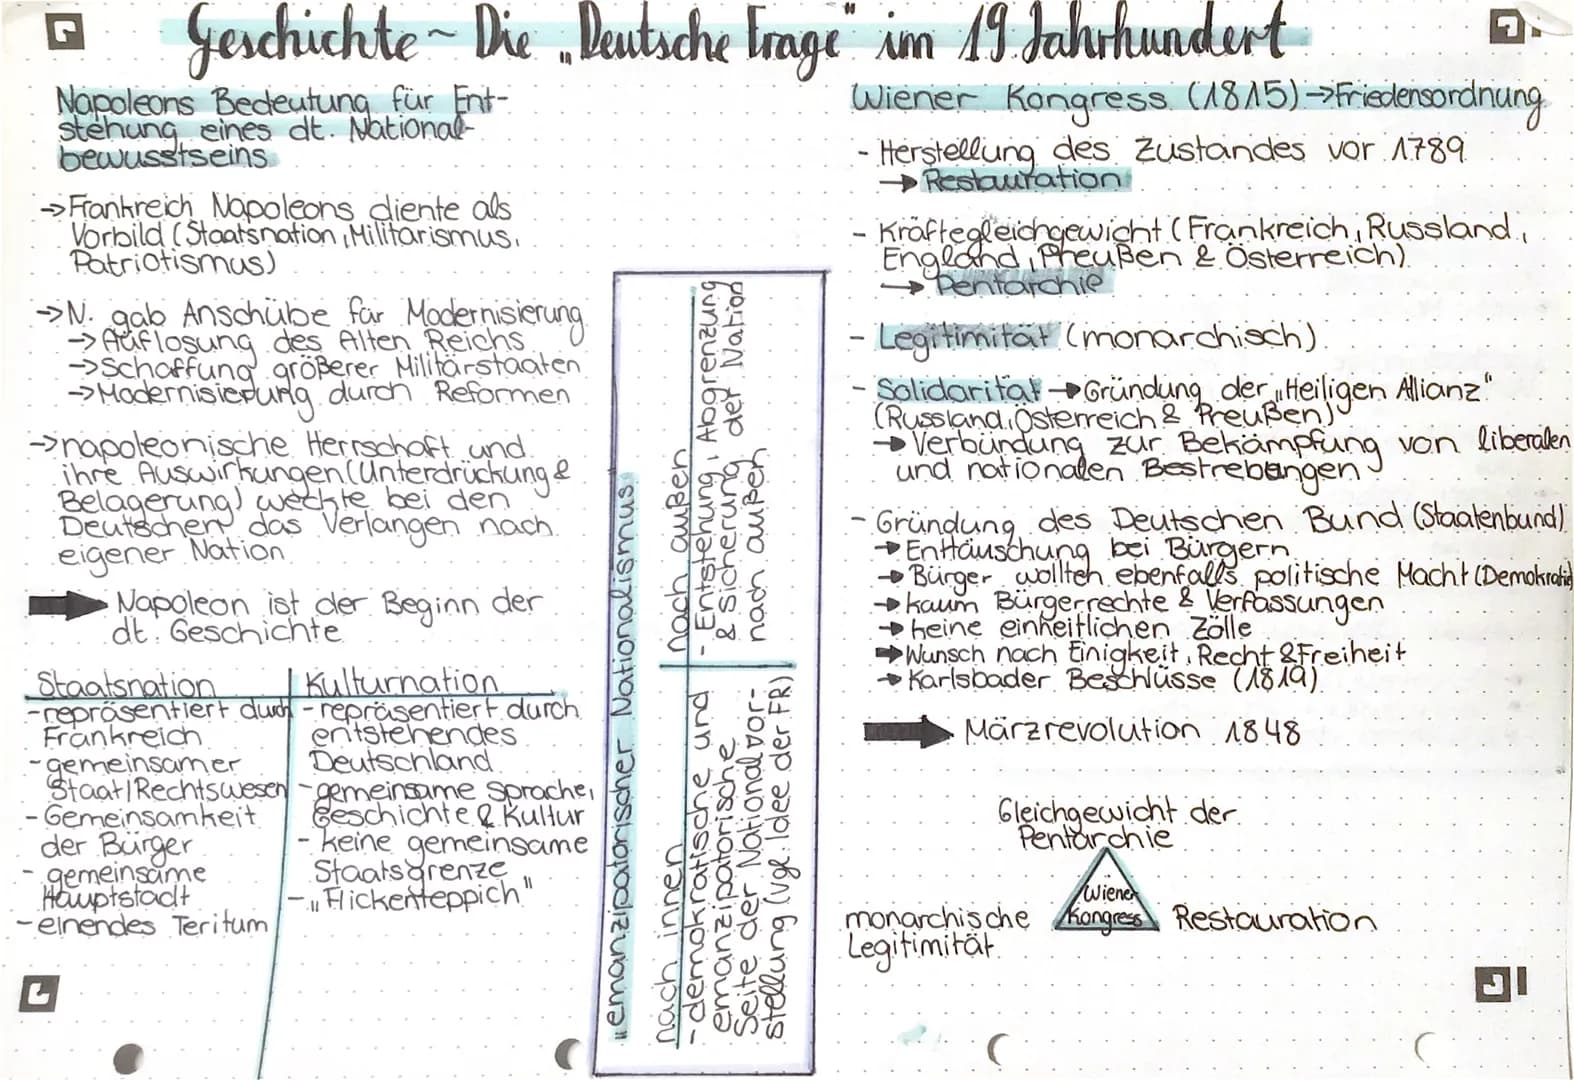 Geschichte ~ Die „Deutsche Frage" im 19. Jahrhundert
Napoleons Bedeutung für Ent-
stehung eines dt. National-
bewusstseins
→ Frankreich Napoleons diente als
Vorbild (Staatsnation, Militarismus,
Patriotismus)
→ N. gab Anschübe für Modernisierung
→ Auflösung des Alten Reichs
→ Schaffung größerer Militärstaaten
→ Modernisierung durch Reformen
→ napoleonische Herrschaft und
ihre Auswirkungen (Unterdrückung &
Belagerung) weckte bei den
Deutschen das Verlangen nach
eigener Nation
➡ Napoleon ist der Beginn der
dt. Geschichte
Staatsnation
- repräsentiert durch
Frankreich
- gemeinsamer
Staat/Rechtswesen
- Gemeinsamkeit
der Bürger
- gemeinsame
Hauptstadt
- einendes Teritum
Kulturnation
- repräsentiert durch
entstehendes
Deutschland
- gemeinsame Sprache,
Geschichte & Kultur
- keine gemeinsame
Staatsgrenze
- „Flickenteppich"
„emanzipatorischer Nationalismus
nach innen
- demokratische und
emanzipatorische
Seite der Nationalvor-
stellung (vgl. Idee der FR)
nach außen
- Entstehung, Abgrenzung
& Sicherung der Nation
nach außen
Wiener Kongress (1815) → Friedensordnung
- Herstellung des Zustandes vor 1789
→ Restauration
- Kräftegleichgewicht (Frankreich, Russland,
England, Preußen & Österreich)
→ Pentarchie
- Legitimität (monarchisch)
- Solidarität → Gründung der „Heiligen Allianz"
(Russland, Österreich & Preußen)
→ Verbündung zur Bekämpfung von liberalen
und nationalen Bestrebungen
- Gründung des Deutschen Bund (Staatenbund)
→ Enttäuschung bei Bürgern
→ Bürger wollten ebenfalls politische Macht (Demokratie)
→ kaum Bürgerrechte & Verfassungen
→ keine einheitlichen Zölle
→ Wunsch nach Einigkeit, Recht & Freiheit
→ Karlsbader Beschlüsse (1819)
➡ Märzrevolution 1848
Gleichgewicht der
Pentarchie
Wiener
Kongress
monarchische
Legitimität
Restauration